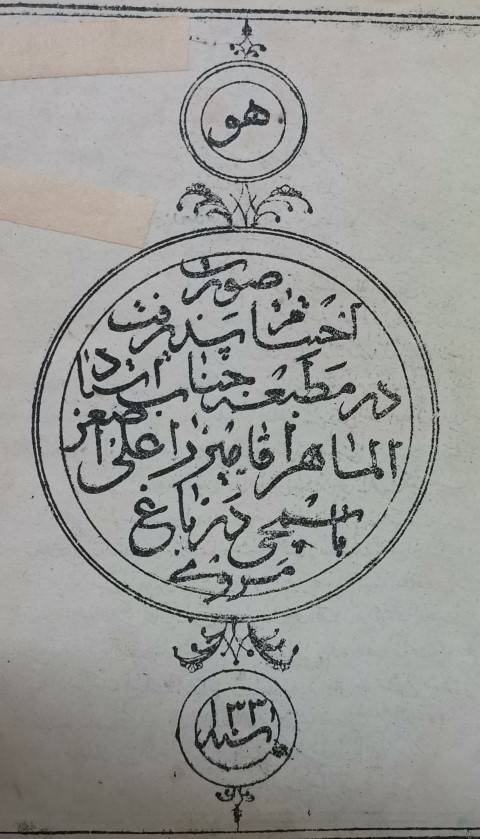 هو
صورت
اختتام پذیرفت
در مطبعه جناب استاد
الماهر اقا میرزا علی اصغر
باسمچی در باغ
مروی
سنه ۱۳۳